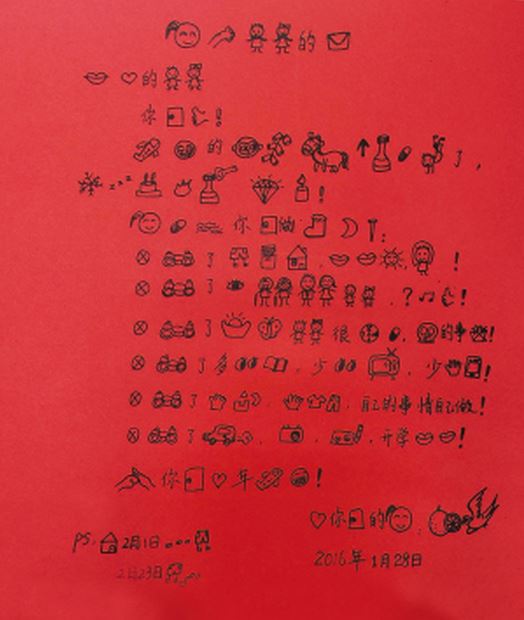 的
的
你 !
的 了,
!
你 :
⊗ 了 !
⊗ 了 . ? ♫ !
⊗ 了 很 . 的事 !
⊗ 了 , 少 , 少 !
⊗ 了 , , 自己的事情自己做!
⊗ 了 , , , 开学 !
你 年 !
你 的 :
2016年1月28日
PS. 2月1日
2月23日